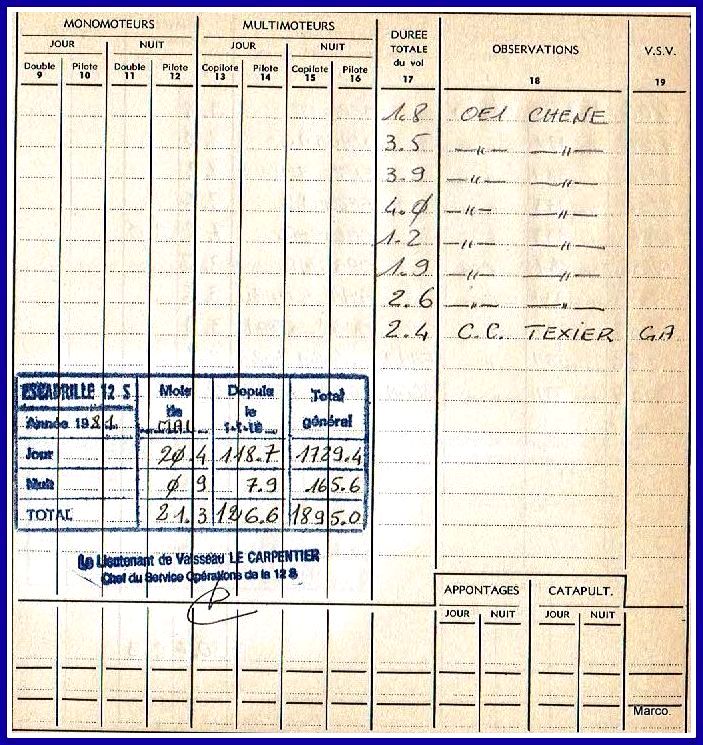 MONOMOTEURS MULTIMOTEURS DUREE TOTALE du vol OBSERVATIONS V.S.V.
JOUR NUIT JOUR NUIT
Double 9 Pilote 10 Double 11 Pilote 12 Copilote 13 Pilote 14 Copilote 15 Pilote 16 17 18 19
1.8 OE1 CHENE
3.5 —〃— —〃—
3.9 —〃— —〃—
4.0 —〃— —〃—
1.2 —〃— —〃—
1.9 —〃— —〃—
2.6 —〃— —〃—
2.4 C.C. TEXIER GA
ESCADRILLE 12 S Mois de MAI Depuis le 1-1-19 Total général
Année 1981
Jour 20.4 118.7 1729.4
Nuit 0 9 7.9 165.6
TOTAL 21.3 126.6 1895.0
Le Lieutenant de Vaisseau LE CARPENTIER
Chef du Service Opérations de la 12 S
APPONTAGES CATAPULT.
JOUR NUIT JOUR NUIT
Marco.